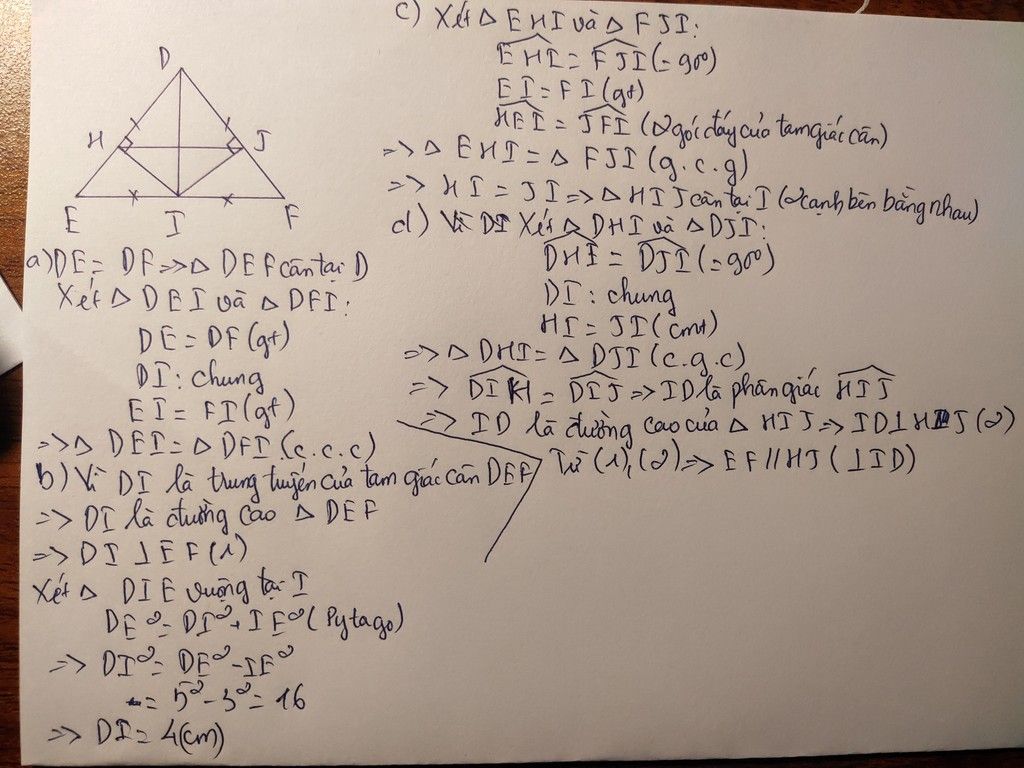 D
H
J
E
I
F
a) DE = DF => Δ DEF cân tại D
Xét Δ DEI và Δ DFI:
DE = DF (gt)
DI : chung
EI = FI (gt)
=> Δ DEI = Δ DFI (c.c.c)
b) Vì DI là trung tuyến của tam giác cân DEF
=> DI là đường cao Δ DEF
=> DI ⊥ EF (1)
Xét Δ DIE vuông tại I
DE² = DI² + IE² (Pytago)
=> DI² = DE² - IE²
= 5² - 3² = 16
=> DI = 4(cm)
c) Xét Δ EHI và Δ FJI:
\widehat{EHI} = \widehat{FJI} (= 90⁰)
EI = FI (gt)
\widehat{HEI} = \widehat{JFI} (2 góc đáy của tam giác cân)
=> Δ EHI = Δ FJI (g.c.g)
=> HI = JI => Δ HIJ cân tại I (2 cạnh bên bằng nhau)
d) Vì DI Xét Δ DHI và Δ DJI:
\widehat{DHI} = \widehat{DJI} (= 90⁰)
DI : chung
HI = JI (cmt)
=> Δ DHI = Δ DJI (c.g.c)
=> \widehat{DIH} = \widehat{DIJ} => ID là phân giác \widehat{HIJ}
=> ID là đường cao của Δ HIJ => ID ⊥ HJ (2)
Từ (1), (2) => EF // HJ (⊥ ID)